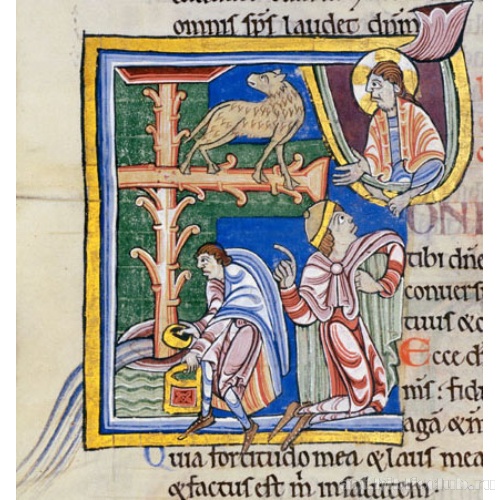 omnis sp̄s laudet dn̄m
tibi dn̄e
conuers
tuus & c
Ecce d̄s
fidu
agā & n̄
Quia fortitudo mea & laus mea
& factus est m̄ in salutem